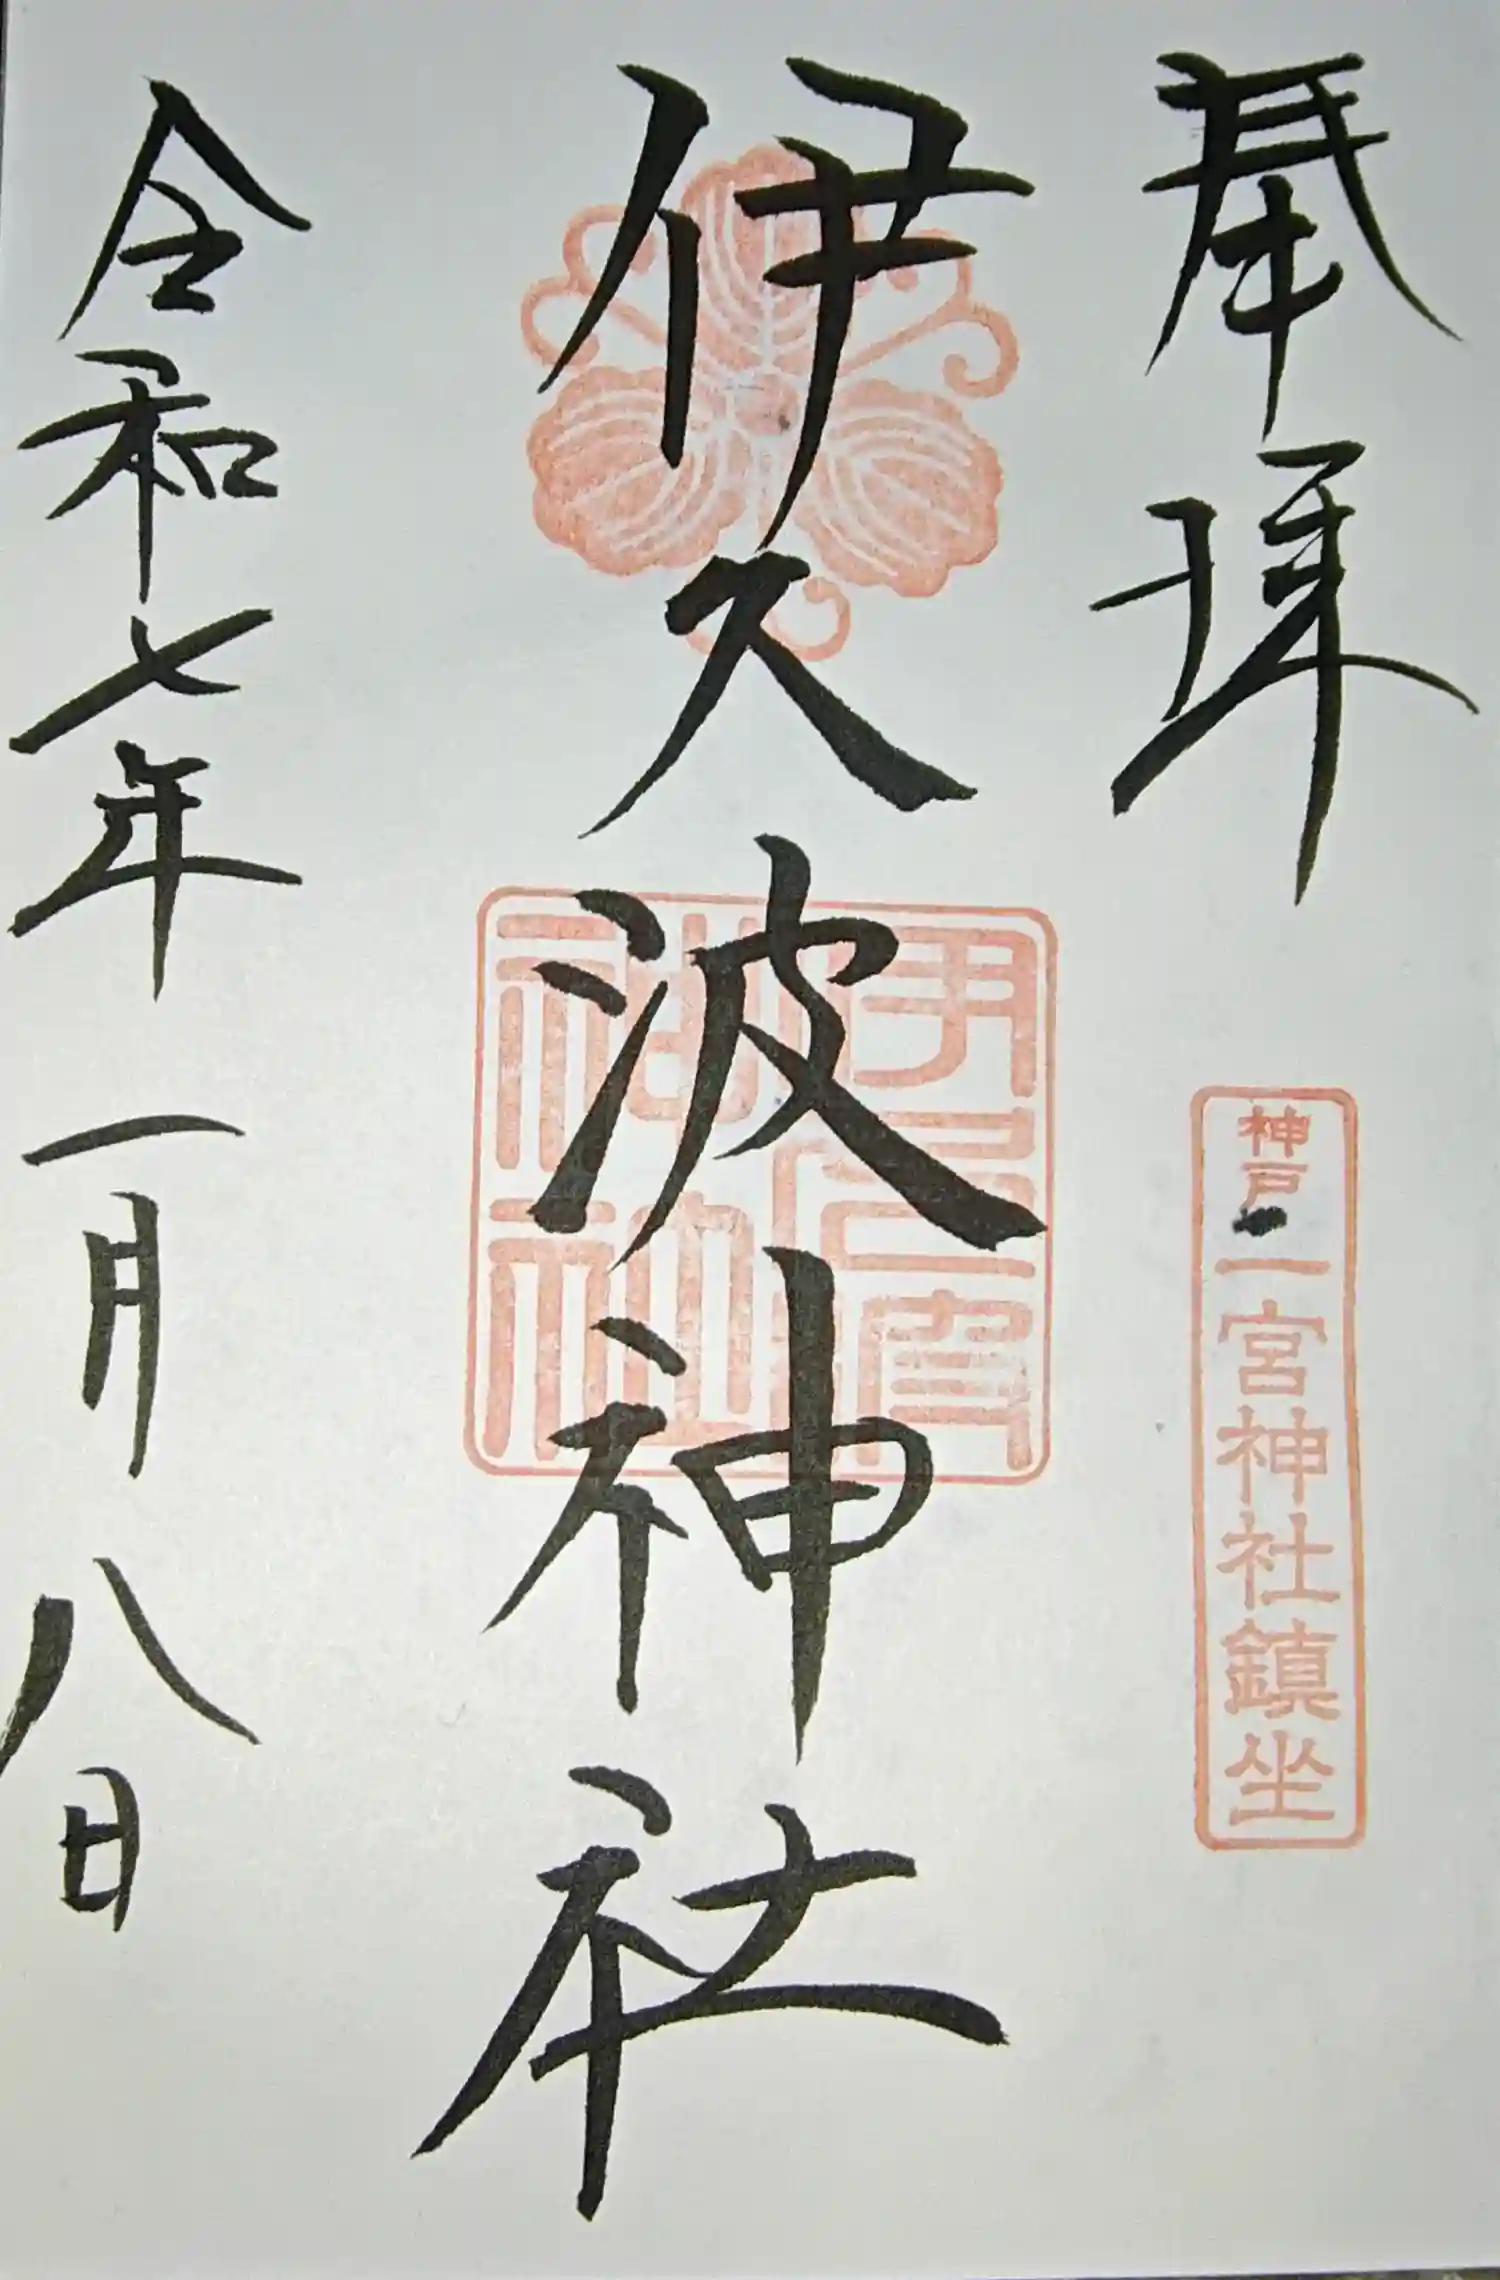 奉拝
神戸二宮神社鎮坐
伊久波神社
令和七年一月八日